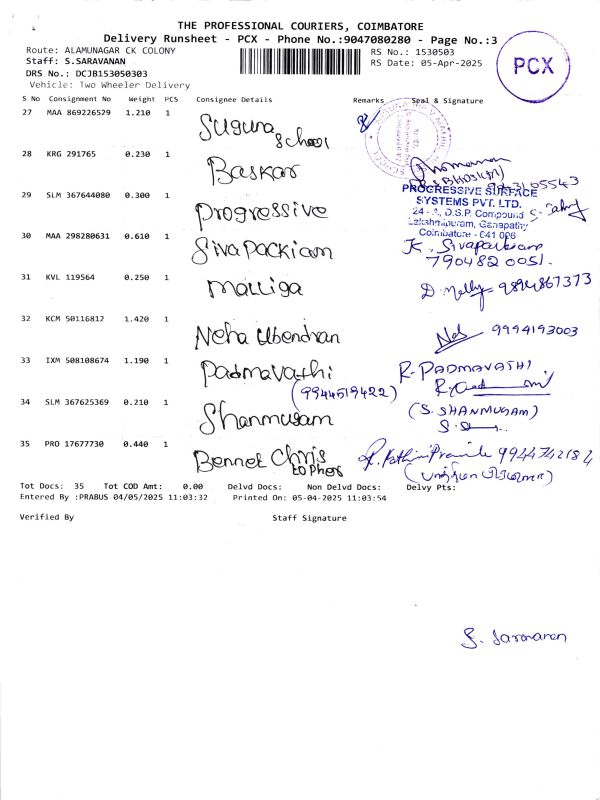 THE PROFESSIONAL COURIERS, COIMBATORE
Delivery Runsheet - PCX - Phone No.:9047080280 - Page No.:3
Route: ALAMUNAGAR CK COLONY
RS No.: 1530503
Staff: S.SARAVANAN
RS Date: 05-Apr-2025
PCX
DRS No.: DCJB153050303
Vehicle: Two Wheeler Delivery
S No Consignment No Weight PCS Consignee Details Remarks Seal & Signature
27 MAA 869226529 1.210 1 Suguna School
28 KRG 291765 0.230 1 Baskar
29 SLM 367644080 0.300 1 Progressive
PROGRESSIVE SURFACE
SYSTEMS PVT. LTD.
24 - A, D.S.P. Compound
Lakshmipuram, Ganapathy
Coimbatore - 641 006
30 MAA 298280631 0.610 1 Sivapackiam K. Sivapackiam
7904820051.
31 KVL 119564 0.250 1 Malliga 9894867373
32 KCM 50116812 1.420 1 Neha Ubendran 9994193003
33 IXM 508108674 1.190 1 Padmavathi R. PADMAVATHI
(9944519422)
34 SLM 367625369 0.210 1 Shanmugam (S. SHANMUGAM)
35 PRO 17677730 0.440 1 Bennet Chris
topher
Tot Docs: 35 Tot COD Amt: 0.00 Delvd Docs: Non Delvd Docs: Delvy Pts:
Entered By :PRABUS 04/05/2025 11:03:32 Printed On: 05-04-2025 11:03:54
Verified By Staff Signature
S. Saravanan